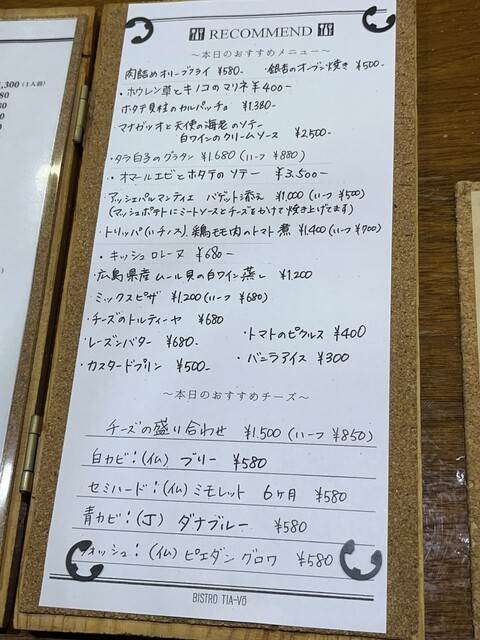 ,300 (1人前)
80
80
80
RECOMMEND
～本日のおすすめメニュー～
肉詰めオリーブフライ ¥580. ・銀杏のオーブン焼き ¥500-
・ホウレン草とキノコのマリネ ¥400-
ホタテ貝柱のカルパッチョ ¥1.380-
マナガツオと天使の海老のソテー
白ワインのクリームソース ¥2,500-
・タラ白子のグラタン ¥1.680 (ハーフ ¥880)
・オマールエビとホタテのソテー ¥3.500-
アッシェパルマンティエ バゲット添え ¥1,000 (ハーフ ¥500)
(マッシュポテトにミートソースとチーズをかけて焼き上げてます)
・トリッパ(ハチノス)、鶏モモ肉のトマト煮 ¥1,400 (ハーフ ¥700)
・キッシュロレーヌ ¥680-
・広島県産ムール貝の白ワイン蒸し ¥1.200
・ミックスピザ ¥1,200 (ハーフ ¥680)
・チーズのトルティーヤ ¥680
・レーズンバター ¥680- ・トマトのピクルス ¥400
・カスタードプリン ¥500- ・バニラアイス ¥300
～本日のおすすめチーズ～
チーズの盛り合わせ ¥1.500 (ハーフ ¥850)
白カビ:(仏) ブリー ¥580
セミハード:(仏) ミモレット 6ヶ月 ¥580
青カビ:(J) ダナブルー ¥580
ォッシュ:(仏) ピエダングロワ ¥580
BISTRO TIA-Vō